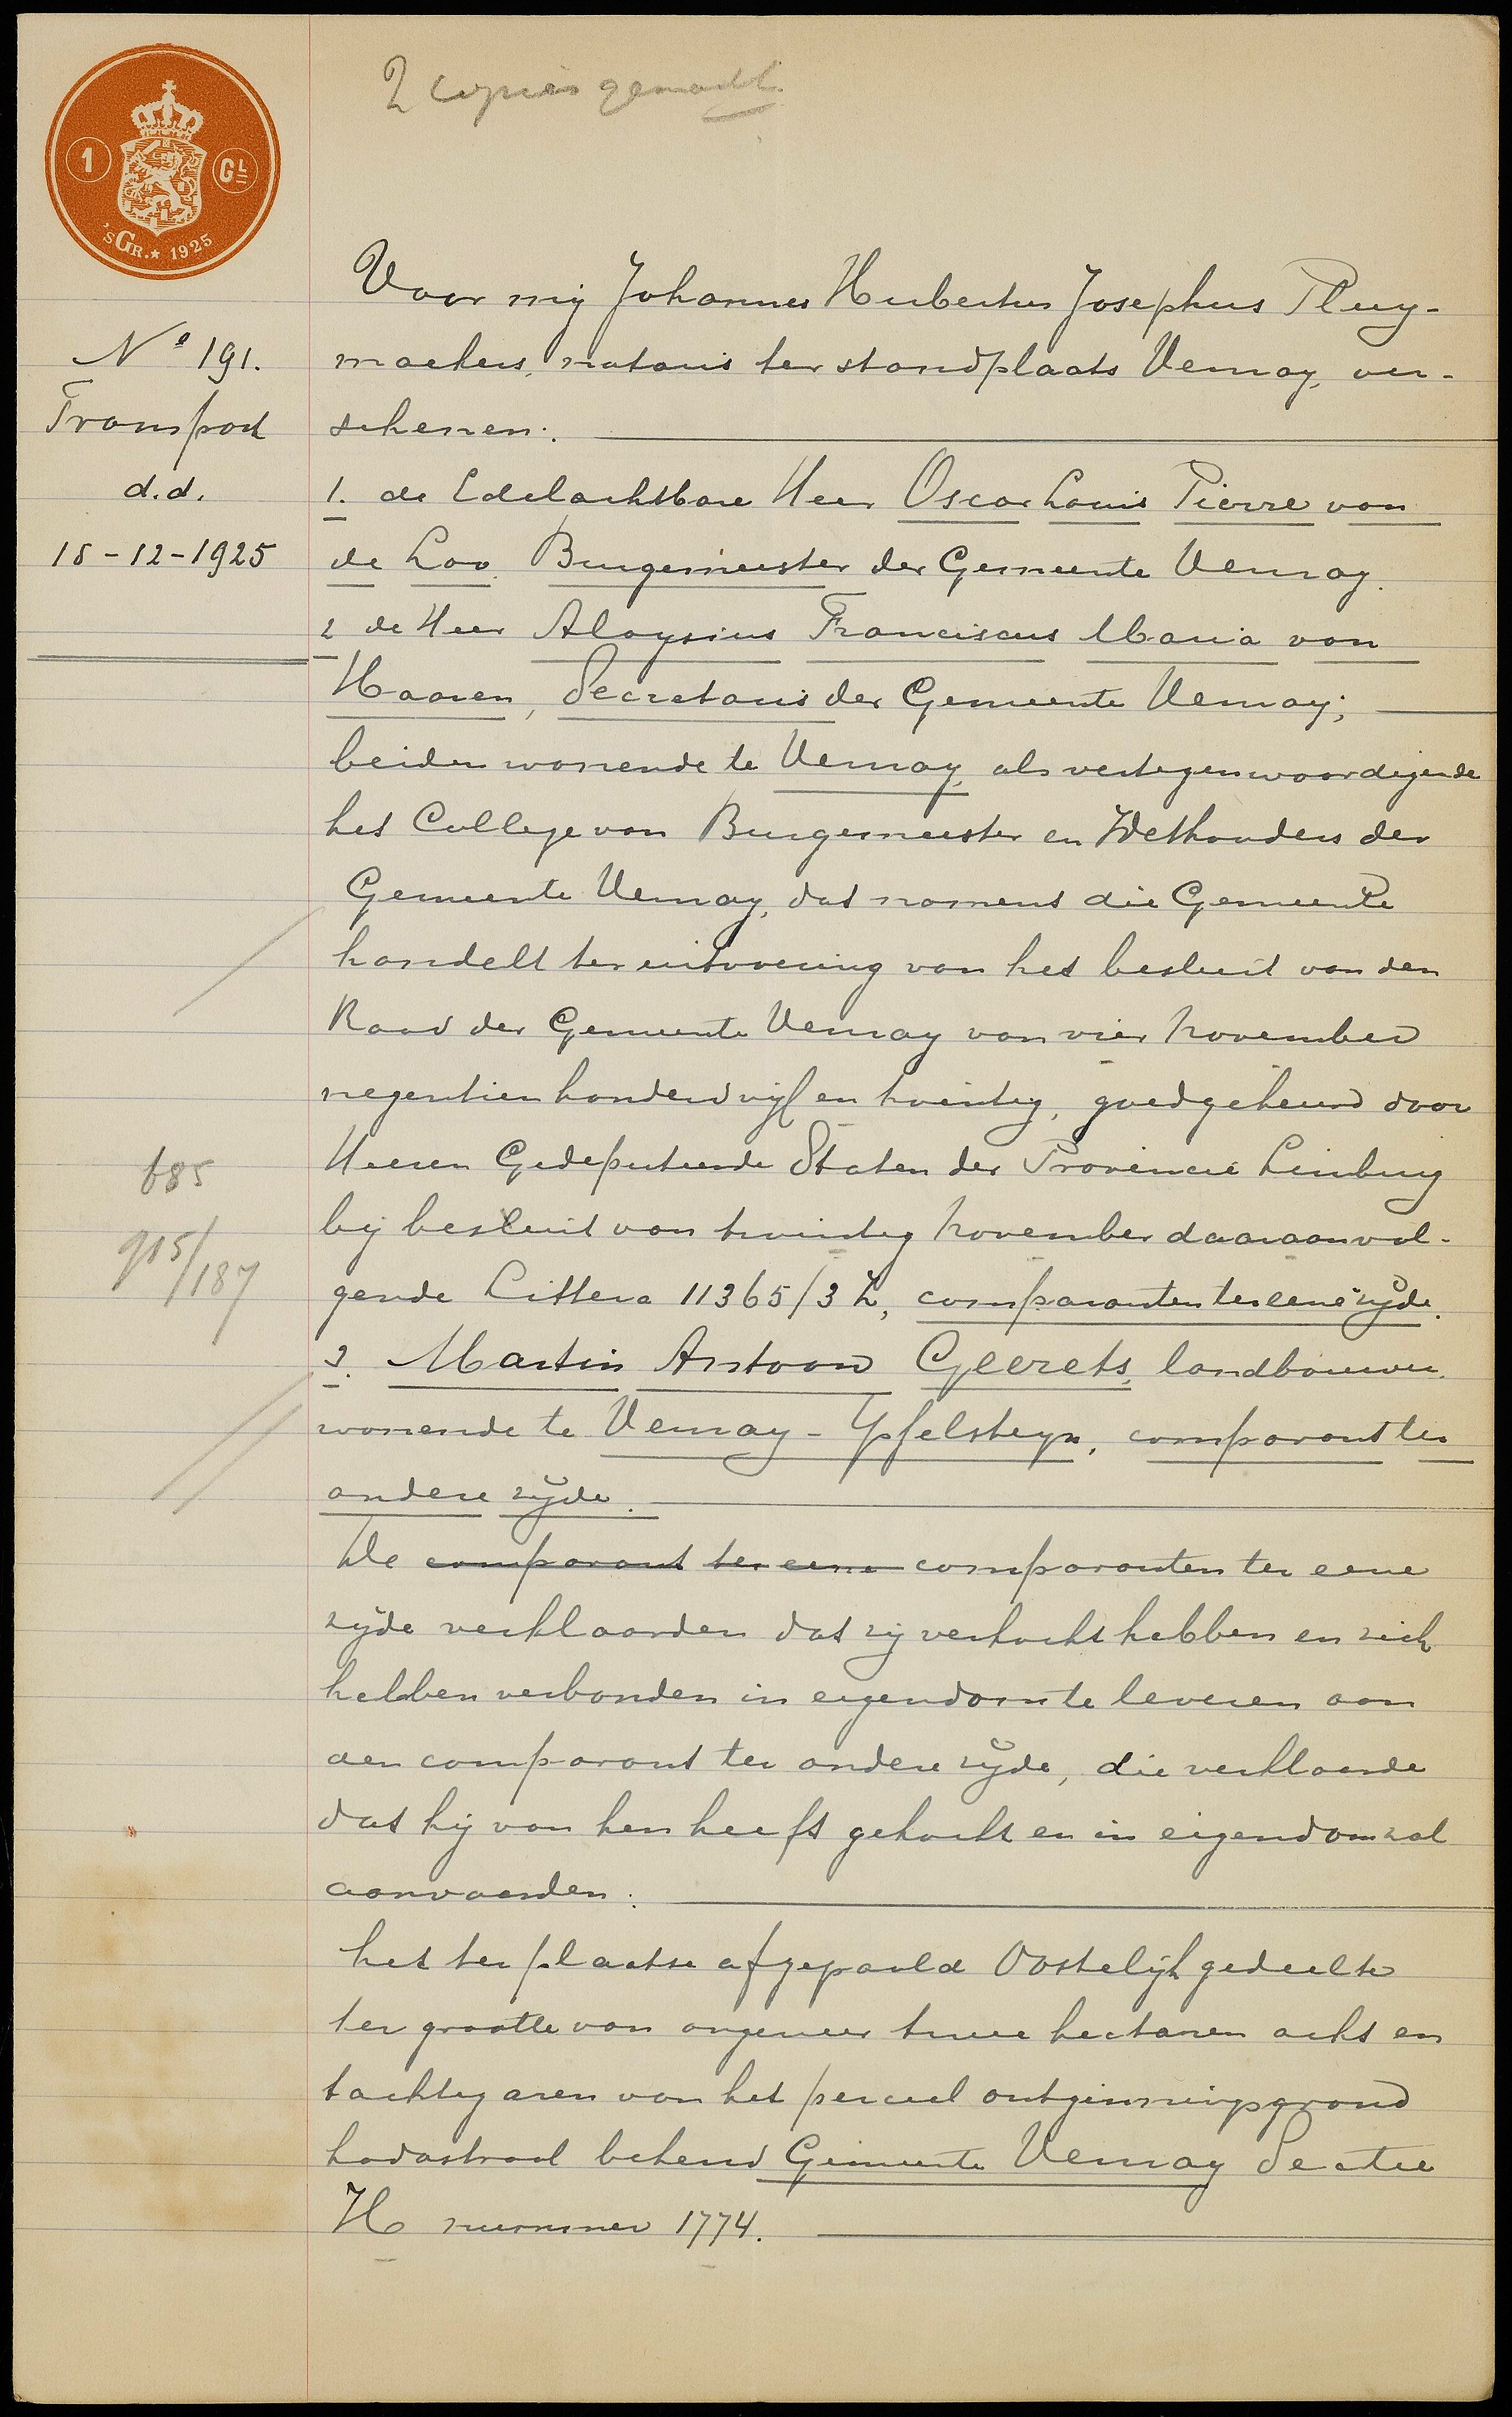 2 copies gemaakt
1 GL
'sGR.★ 1925
Nº 191.
Transport
d.d.
15-12-1925
685
915/187
Voor mij Johannes Hubertus Josephus Pluy-
maekers, notaris ter standplaats Venray, ver-
schenen:
1. de Edelachtbare Heer Oscar Louis Pierre van
de Loo, Burgemeester der Gemeente Venray.
2 de Heer Aloysius Franciscus Maria van
Haaren, Secretaris der Gemeente Venray;
beiden wonende te Venray, als vertegenwoordigende
het College van Burgemeester en Wethouders der
Gemeente Venray, dat namens die Gemeente
handelt ter uitvoering van het besluit van den
Raad der Gemeente Venray van vier November
negentienhonderd vijf en twintig, goedgekeurd door
Heeren Gedeputeerde Staten der Provincie Limburg
bij besluit van twintig November daaraanvol-
gende Littera 11365/3 L, comparanten ter eene zijde.
3. Martin Antoon Geerets, landbouwer,
wonende te Venray - Ysselsteyn, comparant ter
andere zijde.
De comparant ter eene comparanten ter eene
zijde verklaarden dat zij verkocht hebben en zich
hebben verbonden in eigendom te leveren aan
den comparant ter andere zijde, die verklaarde
dat hij van hen heeft gekocht en in eigendom zal
aanvaarden:
het ter plaatse afgepaald Oostelijk gedeelte
ter grootte van ongeveer twee hectaren acht en
tachtig aren van het perceel ontginningsgrond
kadastraal bekend Gemeente Venray Sectie
H nummer 1774.